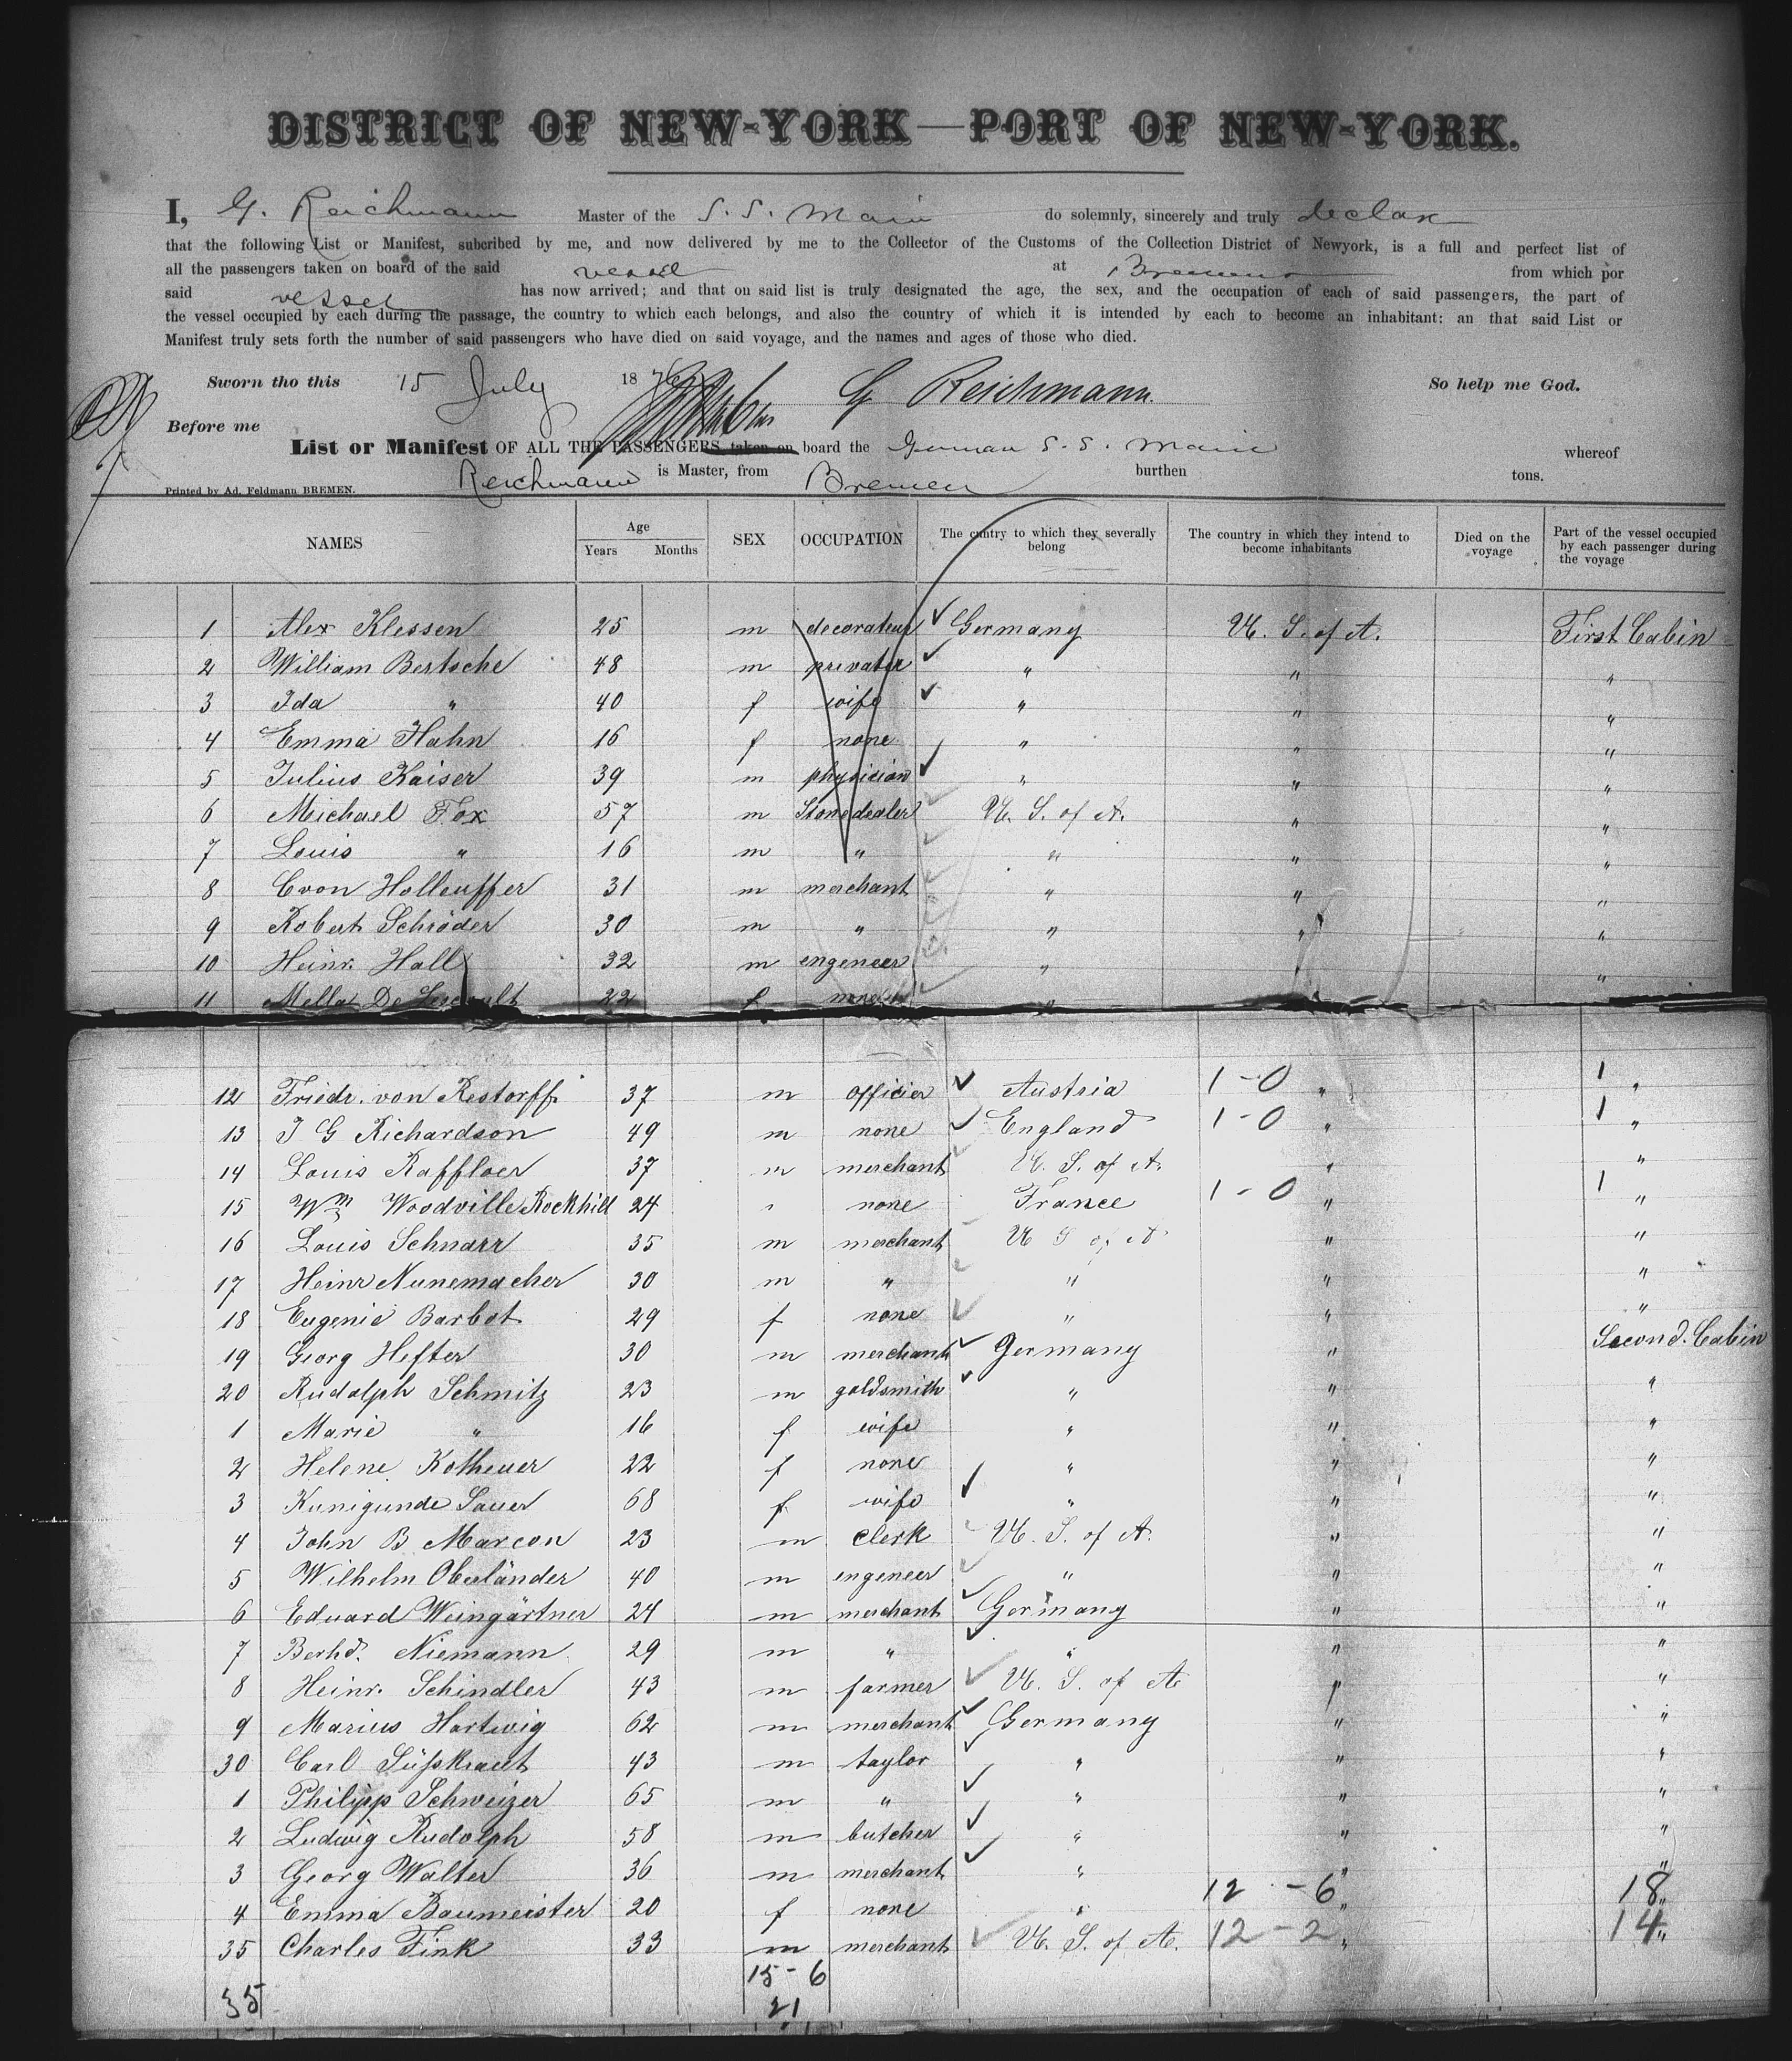 DISTRICT OF NEW-YORK—PORT OF NEW-YORK.
I, G. Reichmann Master of the S. S. Main do solemnly, sincerely and truly declare
that the following List or Manifest, subcribed by me, and now delivered by me to the Collector of the Customs of the Collection District of Newyork, is a full and perfect list of
all the passengers taken on board of the said vessel at Bremen from which por
said vessel has now arrived; and that on said list is truly designated the age, the sex, and the occupation of each of said passengers, the part of
the vessel occupied by each during the passage, the country to which each belongs, and also the country of which it is intended by each to become an inhabitant: an that said List or
Manifest truly sets forth the number of said passengers who have died on said voyage, and the names and ages of those who died.
Sworn tho this 15 July 1876 G Reichmann. So help me God.
Before me
List or Manifest OF ALL THE PASSENGERS taken on board the German S. S. Main whereof
Reichmann is Master, from Bremen burthen tons.
Printed by Ad. Feldmann BREMEN.
NAMES Age Years Months SEX OCCUPATION The cuntry to which they severally belong The country in which they intend to become inhabitants Died on the voyage Part of the vessel occupied by each passenger during the voyage
1 Alex Klessen 25 m decorateur Germany U. S. of A. First Cabin
2 William Bertsche 48 m privatier " " "
3 Ida " 40 f wife " " "
4 Emma Hahn 16 f none " " "
5 Julius Kaiser 39 m physician " " "
6 Michael Fox 57 m Stonedealer U. S. of A. " "
7 Louis " 16 m " " " "
8 C von Holleuffer 31 m merchant " " "
9 Robert Schröder 30 m " " " "
10 Heinr. Hall 32 m engeneer " " "
11 Mella De 22 f none "
12 Friedr. von Restorff 37 m officier Austria 1-0 " 1 "
13 J G Richardson 49 m none England 1-0 " 1 "
14 Louis Raffloer 37 m merchant U. S. of A. " "
15 Wm Woodville Rockhill 24 " none France 1-0 " 1 "
16 Louis Schnarr 35 m merchant U S of A " "
17 Heinr Nunemacher 30 m " " " "
18 Eugenie Barbot 29 f none " " "
19 Georg Hefter 30 m merchant Germany " Second Cabin
20 Rudolph Schmitz 23 m goldsmith " " "
1 Marie " 16 f wife " " "
2 Helene Kotheuer 22 f none " " "
3 Kunigunde Sauer 68 f wife " " "
4 John B Marcon 23 m clerk U. S. of A. " "
5 Wilhelm Oberländer 40 m engeneer " " "
6 Eduard Weingärtner 24 m merchant Germany " "
7 Berhd. Niemann 29 m " " " "
8 Heinr. Schindler 43 m farmer U. S. of A " "
9 Marius Hartwig 62 m merchant Germany " "
30 Carl Süßkraut 43 m taylor " " "
1 Philipp Schweizer 65 m " " " "
2 Ludwig Rudolph 58 m butcher " " "
3 Georg Walter 36 m merchant " " "
4 Emma Baumeister 20 f none " 12 - 6 " 18 "
35 Charles Fink 33 m merchant U. S. of A. 12 - 2 " 14 "
15 - 6
35 21